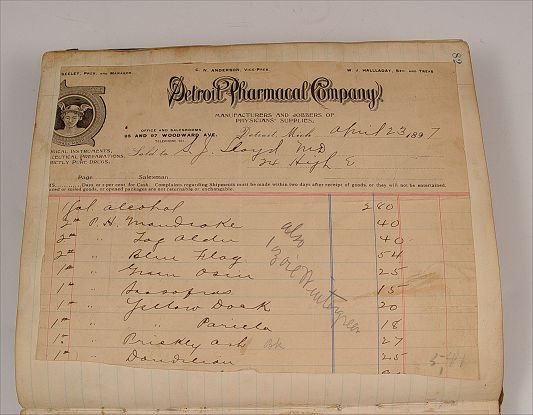 82
SEELEY, PRES. AND MANAGER.
C. N. ANDERSON, VICE-PRES.
W. J. HALLADAY, SEC. AND TREAS
Detroit Pharmacal Company,
MANUFACTURERS AND JOBBERS OF
PHYSICIANS' SUPPLIES.
OFFICE AND SALESROOMS,
65 AND 67 WOODWARD AVE.
Detroit, Mich. April 23 1897
ICAL INSTRUMENTS,
CEUTICAL PREPARATIONS,
STRICTLY PURE DRUGS.
Sold to S. J. Lloyd MD
24 High E
Page Salesman
Days or per cent for Cash. Complaints regarding Shipments must be made within two days after receipt of goods, or they will not be entertained.
used or soiled goods, or opened packages are not returnable or exchangeable.
1 Gal alcohol 2 60
2 " P. H. Mandrake 40
2 " " Tag Alder 40
2 " " Blue Flag 54
1 " " Green Osier 25
1 " " Sassafras 15
1 " " Yellow Dock 20
1 " " Pareira 18
1 " " Prickly Ash Bk 27
1 " " Dandelion 25
also
1 Wintergreen
5.41